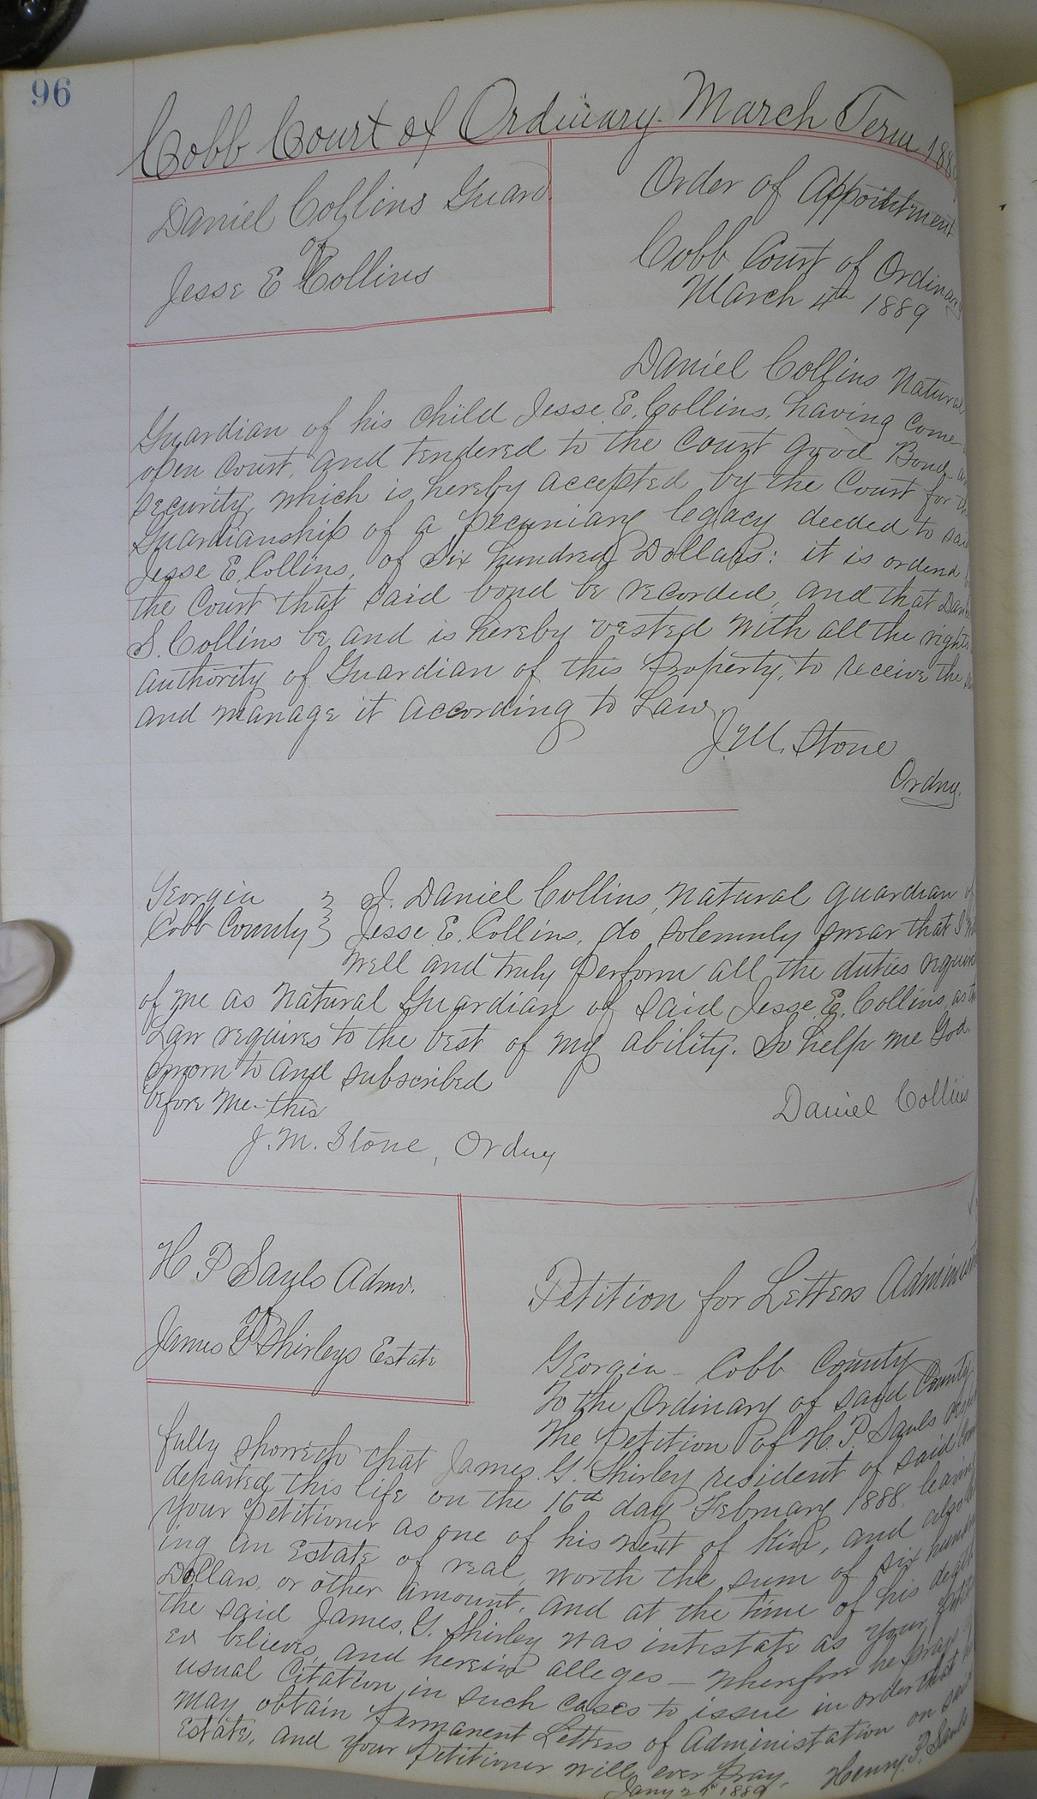 96
Cobb Court of Ordinary March Term 188
Daniel Collins Guard.
of
Jesse E Collins
Order of Appointment
Cobb Court of Ordinary
March 4th 1889
Daniel Collins Natural
Guardian of his child Jesse E. Collins, having come
open Court, and tendered to the Court good Bond
security, which is hereby accepted by the Court for
Guardianship of a pecuniary legacy deeded to said
Jesse E. Collins, of Six hundred Dollars: it is ordered
the Court that said bond be recorded, and that
S. Collins be and is hereby vested with all the rights
authority of Guardian of this property, to receive the
and manage it according to Law
J. M. Stone
Ordny.
Georgia
Cobb County
I. Daniel Collins, natural guardian of
Jesse E. Collins, do solemnly swear that I
well and truly perform all the duties
of me as natural Guardian of said Jesse E. Collins, as
Law requires to the best of my ability. So help me God
sworn to and subscribed
before me this
Daniel Collins
J. M. Stone, Ordny
H P Sauls Admr.
of
James G Shirleys Estate
Petition for Letters
Georgia - Cobb County
To the Ordinary of said County
The Petition of H. P. Sauls
fully showeth that James G. Shirley resident of said
departed this life on the 16th day February 1888 leaving
your Petitioner as one of his next of Kin, and also
ing an Estate of real, worth the sum of six
Dollars, or other amount, and at the time of his death
the said James. G. Shirley was intestate as your
er believes and herein alleges - Wherefore he prays
usual citation in such cases to issue in order that he
may obtain permanent Letters of Administration on said
Estate, and your Petitioner will ever pray.
Henry P. Sauls
1889